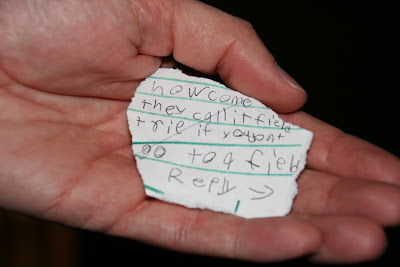 how come
they call it field
trie if you dont
go to a field
Reply →